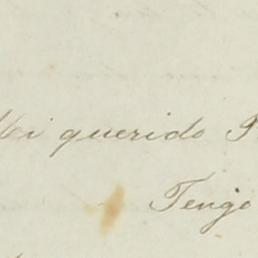 Mi querido
Tengo